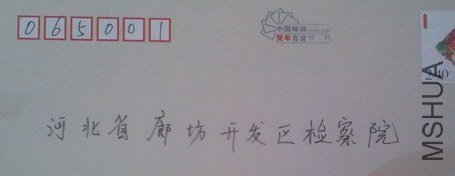 065001
中国邮政
贺年有奖
河北省廊坊开发区检察院
MSHUA